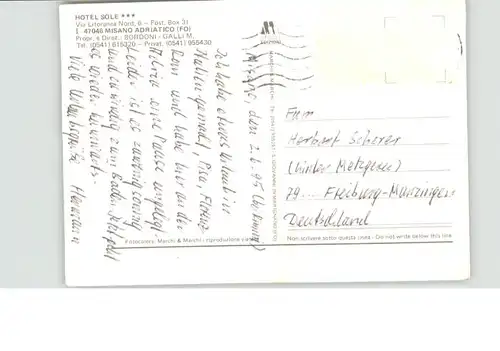 HOTEL SOLE ***
Via Litoranea Nord, 6 - Post. Box 31
I - 47046 MISANO ADRIATICO (FO)
Propr. e Direz.: BORDONI - GALLI M.
Tel. (0541) 615320 - Privat. (0541) 955430
Misano, den 2.6.95
Ich habe etwas Urlaub in
Italien gemacht, Pisa, Florenz
Rom und habe hier an der
Adria eine Pause eingelegt.
Leider ist es zu wenig sonnig
und zu windig zum Baden. Jetzt geht
es wieder heimwärts.
Viele Urlaubsgrüße Hermann
Fotocolors: Marchi & Marchi - riproduzione vietata
Herbert Scherer
(hinter Metzgerei)
79... Freiburg-Munzingen
Deutschland
Non scrivere sotto questa linea - Do not write below this line